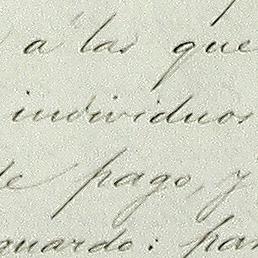 a las que
individuos
de pago, y
guardo: par